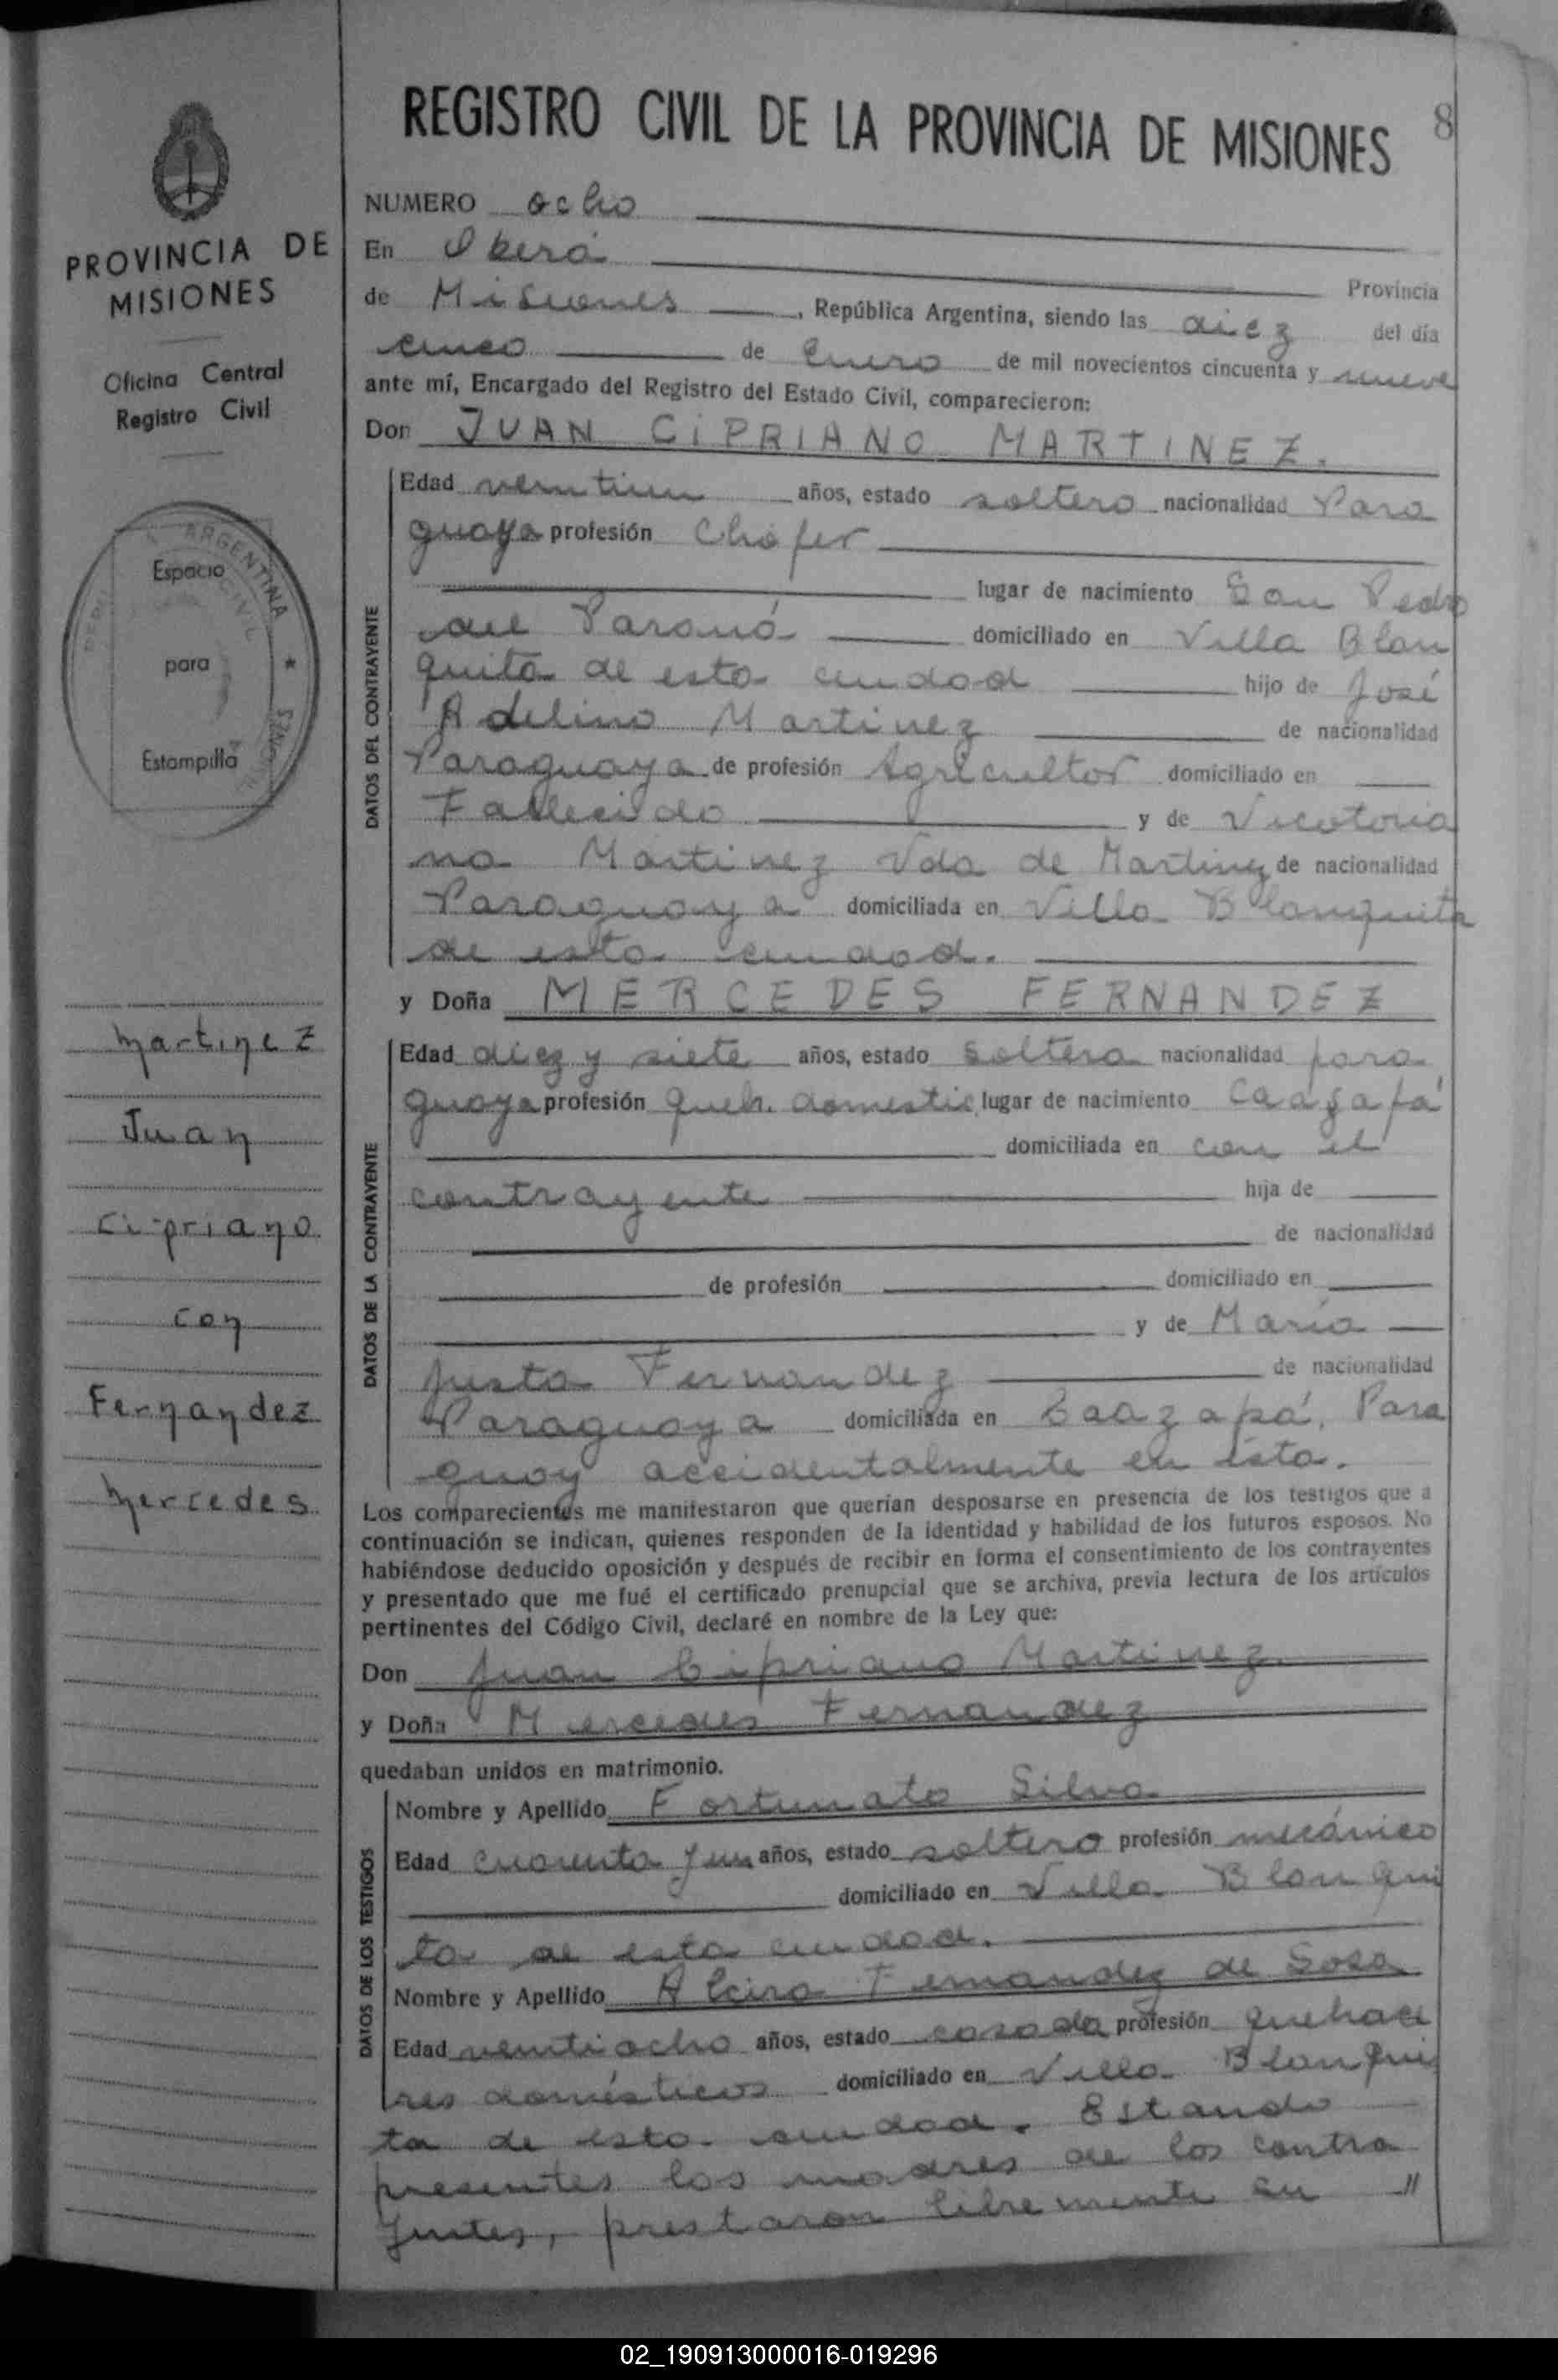 REGISTRO CIVIL DE LA PROVINCIA DE MISIONES
8
PROVINCIA DE
MISIONES
Oficina Central
Registro Civil
ARGENTINA
Espacio
para
Estampilla
Martinez
Juan
Cipriano
con
Fernandez
Mercedes
NUMERO ocho
En Oberá
Provincia
de Misiones, República Argentina, siendo las diez del día
cinco de Enero de mil novecientos cincuenta y nueve
ante mí, Encargado del Registro del Estado Civil, comparecieron:
Don JUAN CIPRIANO MARTINEZ.
DATOS DEL CONTRAYENTE
Edad años, estado soltero nacionalidad Para
guaya profesión Chófer
lugar de nacimiento San Pedro
del Paraná domiciliado en Villa Blan
quita de esta ciudad hijo de José
Adelino Martinez de nacionalidad
Paraguaya de profesión Agricultor domiciliado en
Fallecido y de Vicotoria
na Martinez Vda de Martinez de nacionalidad
Paraguaya domiciliada en Villa Blanquita
de esta ciudad.
y Doña MERCEDES FERNANDEZ
DATOS DE LA CONTRAYENTE
Edad diez y siete años, estado soltera nacionalidad para
guaya profesión queh. domestic. lugar de nacimiento Caazapá
domiciliada en con el
contrayente hija de
de nacionalidad
de profesión domiciliado en
y de María
Justa Fernandez de nacionalidad
Paraguaya domiciliada en Caazapá, Para
guay accidentalmente en ésta.
Los comparecientes me manifestaron que querían desposarse en presencia de los testigos que a
continuación se indican, quienes responden de la identidad y habilidad de los futuros esposos. No
habiéndose deducido oposición y después de recibir en forma el consentimiento de los contrayentes
y presentado que me fué el certificado prenupcial que se archiva, previa lectura de los artículos
pertinentes del Código Civil, declaré en nombre de la Ley que:
Don Juan Cipriano Martinez.
y Doña Mercedes Fernandez
quedaban unidos en matrimonio.
DATOS DE LOS TESTIGOS
Nombre y Apellido Fortunato Silva
Edad cuarenta y un años, estado soltero profesión mecánico
domiciliado en Villa Blanqui
ta de esta ciudad.
Nombre y Apellido Alcira Fernandez de Sosa
Edad veintiocho años, estado casada profesión quehace
res domésticos domiciliado en Villa Blanqui
ta de esta ciudad. Estando
presentes las madres de los contra
yentes, prestaron libremente su "
02_190913000016-019296